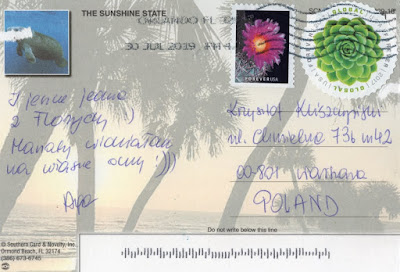 THE SUNSHINE STATE
ORLANDO FL 32
30 JUL 2019 PM 4
FOREVER USA
GLOBAL
USA
GLOBAL
I jeszcze jedna
z Florydy :)
Manaty widziałam
na własne oczy :)))
Aga
Krzysztof
ul. Chmielna 73b m 42
00-801 Warszawa
POLAND
Do not write below this line
© Southern Card & Novelty, Inc.
Ormond Beach, FL 32174
(386) 673-6745